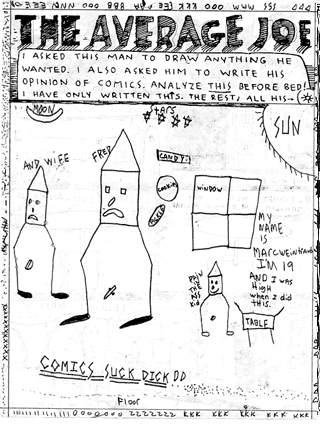 THE AVERAGE JOE
I ASKED THIS MAN TO DRAW ANYTHING HE
WANTED. I ALSO ASKED HIM TO WRITE HIS
OPINION OF COMICS. ANALYZE THIS BEFORE BED!
I HAVE ONLY WRITTEN THIS. THE REST, ALL HIS→
MOON
STARS
SUN
AND WIFE
FRED
CANDY
COOKIE
WINDOW
MY
NAME
IS
I'M 19
AND I was
HIGH
when I did
THIS.
TABLE
COMICS SUCK DICK DD
Floor
XXXXXXXXXX
ZZZZZZZ KKK KKK KKK KKK